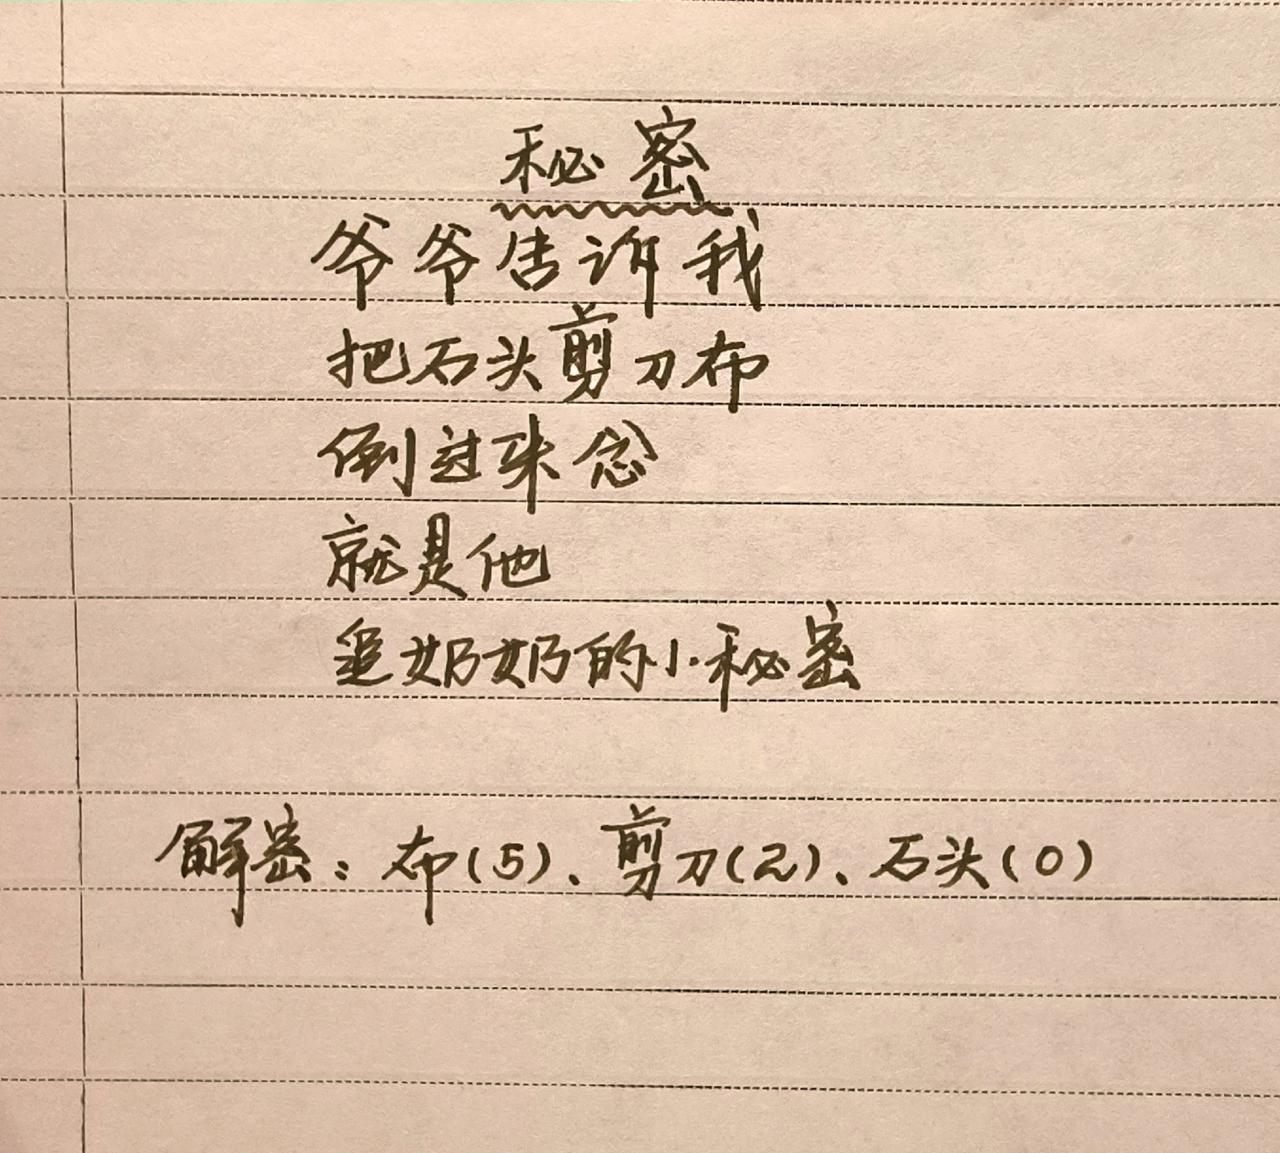 秘密
爷爷告诉我
把石头剪刀布
倒过来念
就是他
追奶奶的小秘密
解密：布(5)、剪刀(2)、石头(0)